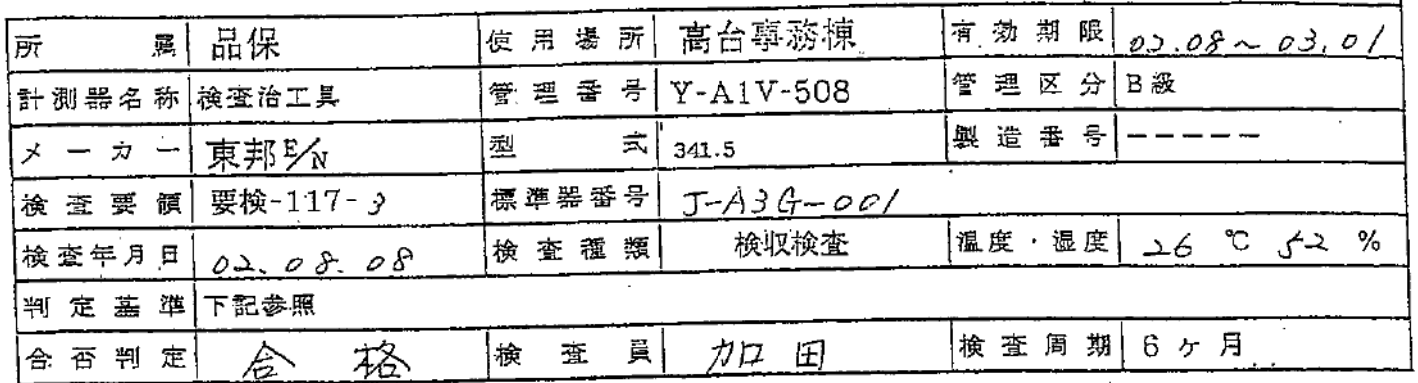 所属 品保 使用場所 高台事務棟 有効期限 02.08～03.01
計測器名称 検査治工具 管理番号 Y-A1V-508 管理区分 B級
メーカー 東邦E/N 型式 341.5 製造番号 -----
検査要領 要検-117-3 標準器番号 J-A3G-001
検査年月日 02.08.08 検査種類 検収検査 温度・湿度 26 ℃ 52 %
判定基準 下記参照
合否判定 合格 検査員 加田 検査周期 6ヶ月